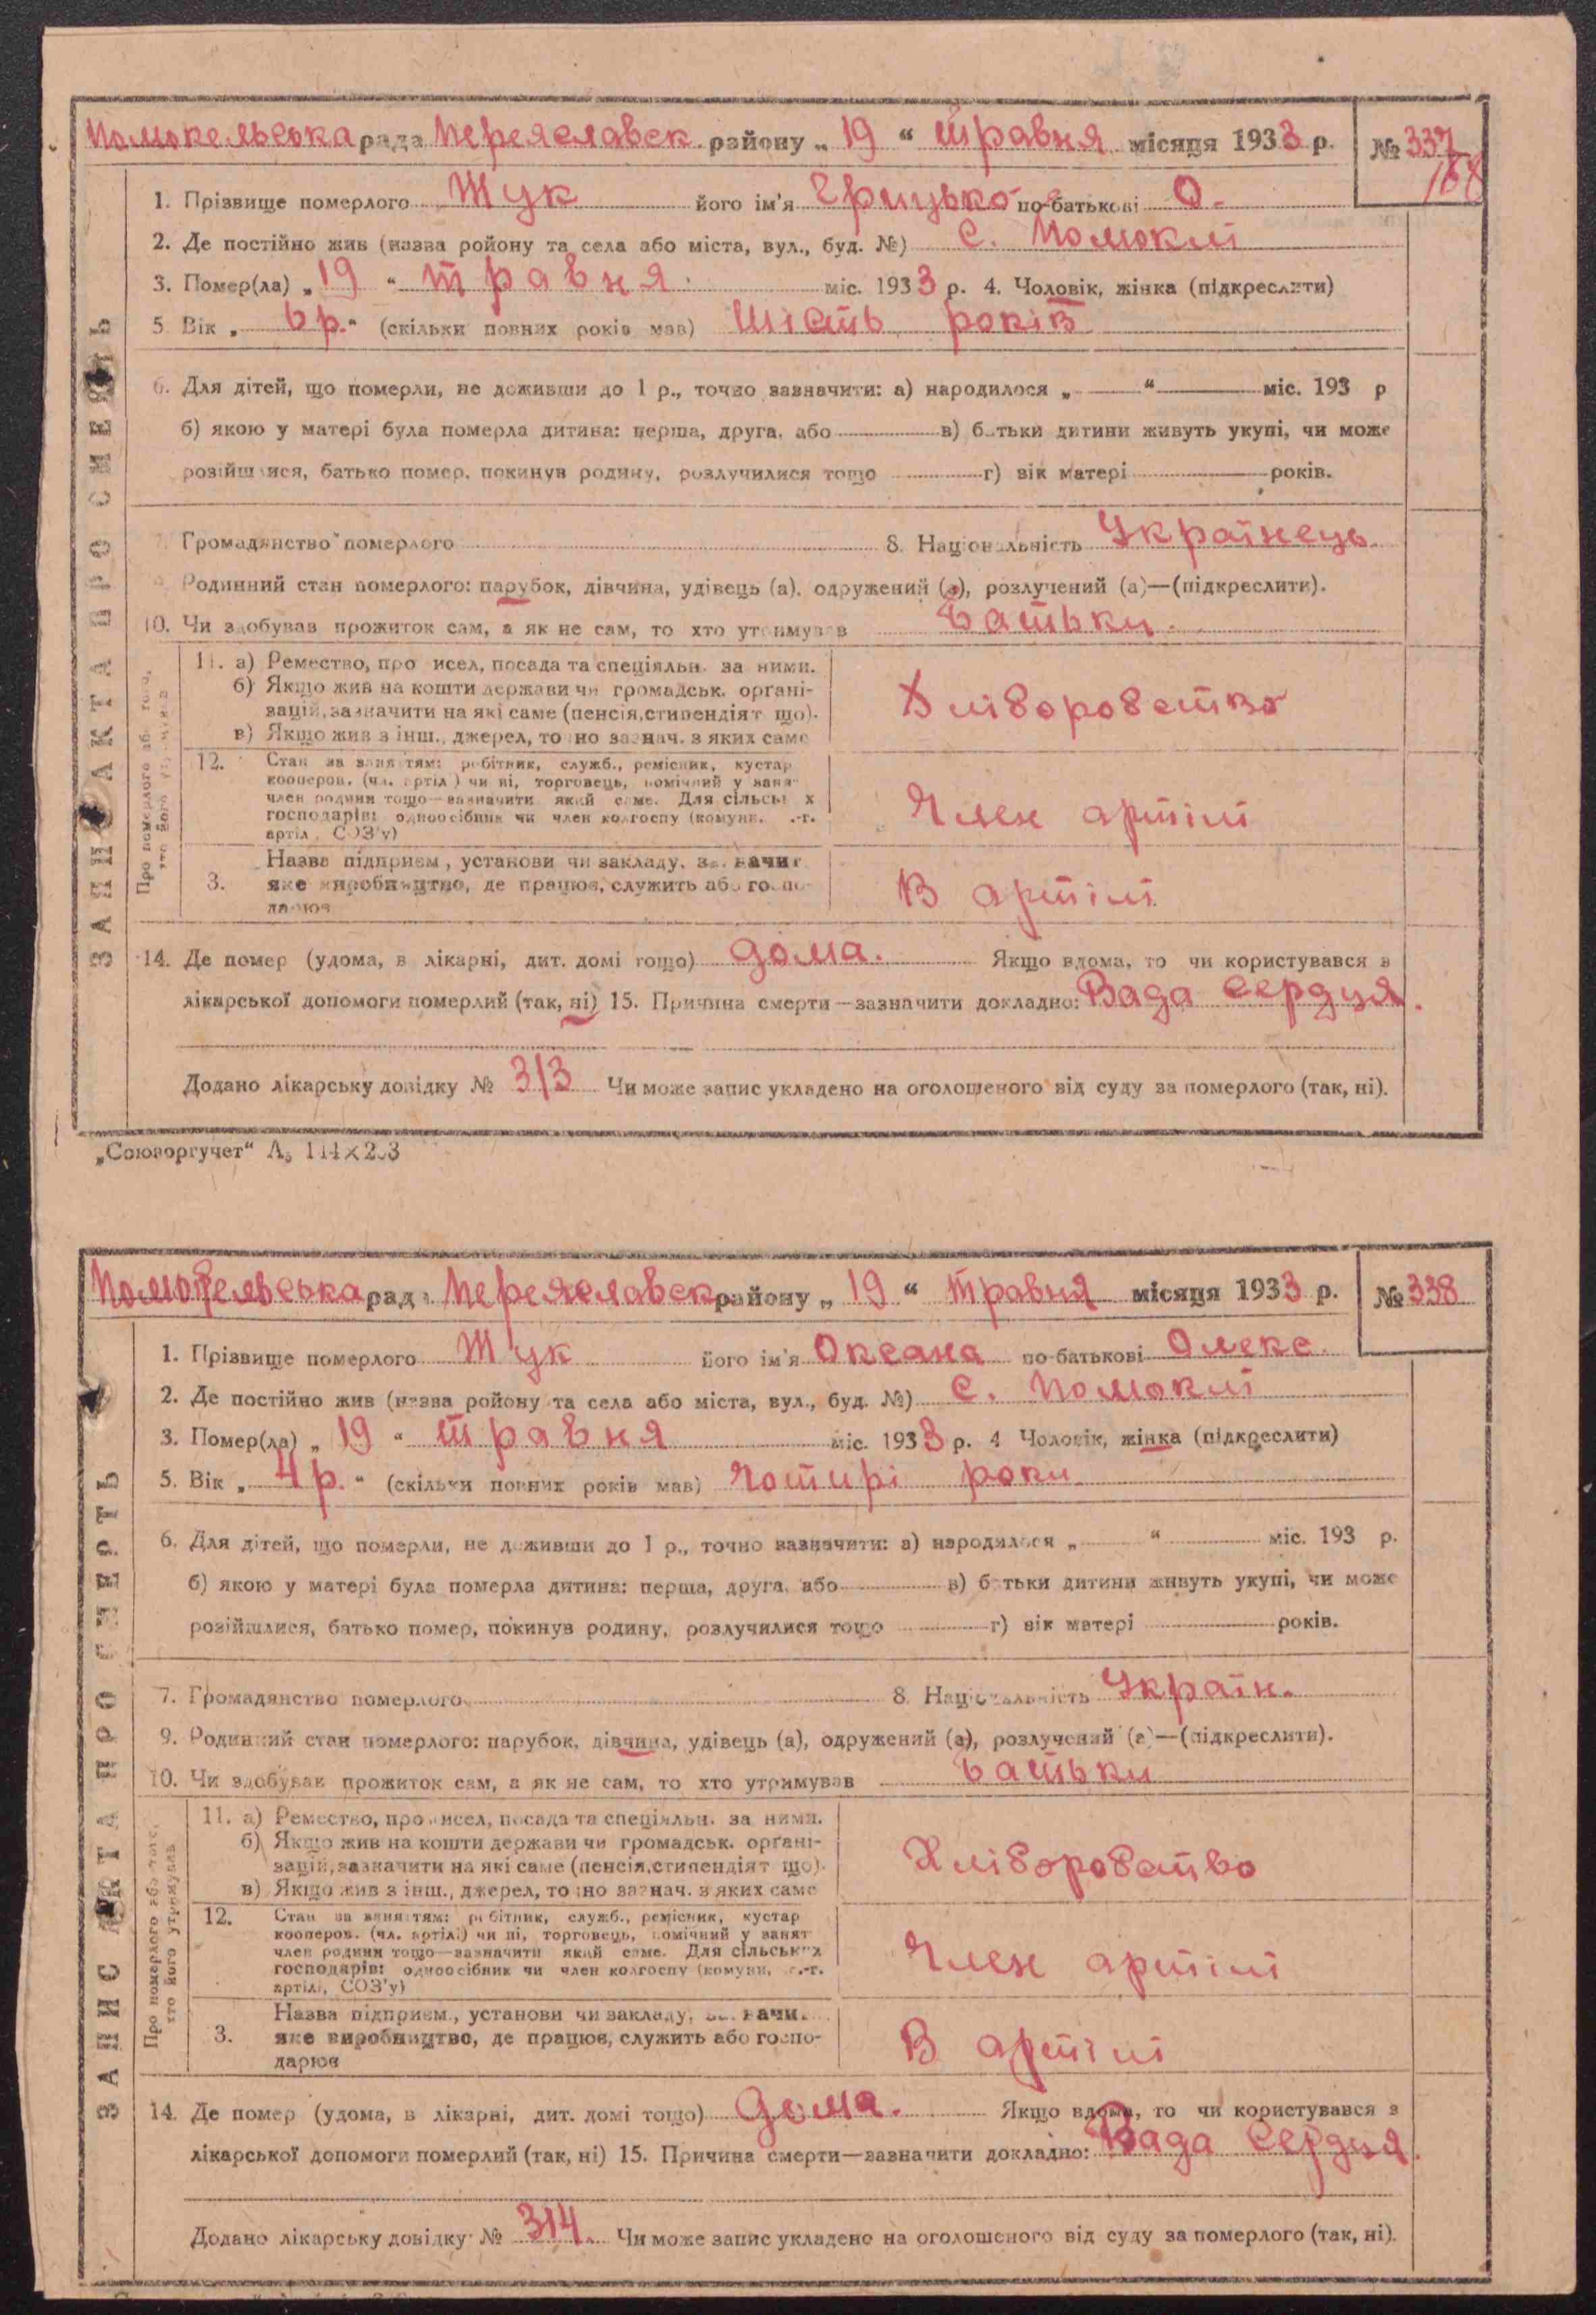 Помокельська рада Переяславск. району „ 19 “ травня місяця 1933 р. № 337
168
1. Прізвище померлого Жук його ім'я Грицько по-батькові О.
2. Де постійно жив (назва ройону та села або міста, вул., буд. №) с. Помоклі
3. Помер(ла) „ 19 “ травня міс. 1933 р. 4. Чоловік, жінка (підкреслити)
5 Вік „ 6 р. “ (скільки повних років мав) Шість років
6. Для дітей, що померли, не доживши до 1 р., точно зазначити: а) народилося „ “ міс. 193 р
б) якою у матері була померла дитина: перша, друга, або в) батьки дитини живуть укупі, чи може
розійшлися, батько помер, покинув родину, розлучилися тощо г) вік матері років.
7. Громадянство померлого 8. Національність Українець
9. Родинний стан померлого: парубок, дівчина, удівець (а), одружений (а), розлучений (а)—(підкреслити).
10. Чи здобував прожиток сам, а як не сам, то хто утримував батьки.
ЗАПИС АКТА ПРО СМЕРТЬ
Про померлого або того, хто його утримував
11. а) Ремество, промисел, посада та спеціяльн. за ними.
б) Якщо жив на кошти держави чи громадськ. органі-
зацій, зазначити на які саме (пенсія, стипендіят що).
в) Якщо жив з інш., джерел, точно зазнач. з яких саме
Хліборобство
12. Стан за заняттям: робітник, служб., ремісник, кустар
кооперов. (чл. артілі) чи ні, торговець, помічний у занят
член родини тощо—зазначити який саме. Для сільських
господарів: одноосібник чи член колгоспу (комуни, с.-г.
артілі, СОЗ'у)
Член артілі
3. Назва підприєм., установи чи закладу, зазначит
яке виробництво, де працює, служить або госпо-
дарює
В артілі
14. Де помер (удома, в лікарні, дит. домі тощо) дома. Якщо вдома, то чи користувався з
лікарської допомоги померлий (так, ні) 15. Причина смерти—зазначити докладно: Вада серця.
Додано лікарську довідку № 313 Чи може запис укладено на оголошеного від суду за померлого (так, ні).
„Союзоргучет“ А5 114×203
Помокельська рада Переяславск району „ 19 “ травня місяця 1933 р. № 338
1. Прізвище померлого Жук його ім'я Оксана по-батькові Олекс.
2. Де постійно жив (назва ройону та села або міста, вул., буд. №) с. Помоклі
3. Помер(ла) „ 19 “ травня міс. 1933 р. 4 Чоловік, жінка (підкреслити)
5. Вік „ 4 р. “ (скільки повних років мав) Чотирі роки
6. Для дітей, що померли, не доживши до 1 р., точно зазначити: а) народилося „ “ міс. 193 р.
б) якою у матері була померла дитина: перша, друга, або в) батьки дитини живуть укупі, чи може
розійшлися, батько помер, покинув родину, розлучилися тощо г) вік матері років.
7. Громадянство померлого 8. Національність Україн.
9. Родинний стан померлого: парубок, дівчина, удівець (а), одружений (а), розлучений (а)—(підкреслити).
10. Чи здобував прожиток сам, а як не сам, то хто утримував батьки
ЗАПИС АКТА ПРО СМЕРТЬ
Про померлого або того, хто його утримував
11. а) Ремество, промисел, посада та спеціяльн. за ними.
б) Якщо жив на кошти держави чи громадськ. органі-
зацій, зазначити на які саме (пенсія, стипендіят що).
в) Якщо жив з інш., джерел, точно зазнач. з яких саме
Хліборобство
12. Стан за заняттям: робітник, служб., ремісник, кустар
кооперов. (чл. артілі) чи ні, торговець, помічний у занят
член родини тощо—зазначити який саме. Для сільських
господарів: одноосібник чи член колгоспу (комуни, с.-г.
артілі, СОЗ'у)
Член артілі
3. Назва підприєм., установи чи закладу, зазначи
яке виробництво, де працює, служить або госпо-
дарює
В артілі
14. Де помер (удома, в лікарні, дит. домі тощо) дома. Якщо вдома, то чи користувався з
лікарської допомоги померлий (так, ні) 15. Причина смерти—зазначити докладно: Вада серця.
Додано лікарську довідку № 314. Чи може запис укладено на оголошеного від суду за померлого (так, ні).